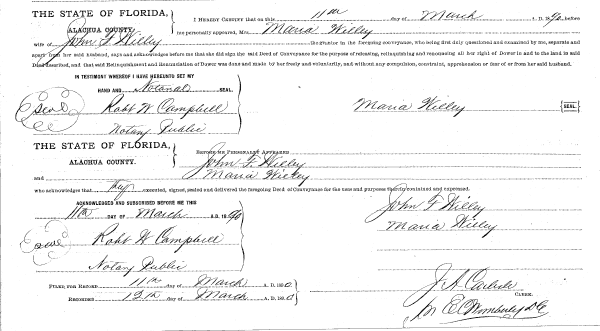 THE STATE OF FLORIDA,
ALACHUA COUNTY.
I HEREBY CERTIFY that on this 11th day of March A. D. 1890, before
me personally appeared, Mrs. Maria Willey
wife of John F. Willey the grantor in the foregoing conveyance, who being first duly questioned and examined by me, separate and
apart from her said husband, says and acknowledges before me that she did sign the said Deed of Conveyance for the purpose of releasing, relinquishing and renouncing all her right of Dower in and to the land in said
Deed described, and that said Relinquishment and Renunciation of Dower was done and made by her freely and voluntarily, and without any compulsion, constraint, apprehension or fear of or from her said husband.
IN TESTIMONY WHEREOF I HAVE HEREUNTO SET MY
HAND AND Notarial SEAL.
Seal Robt W Campbell
Notary Public
Maria Willey [SEAL]
THE STATE OF FLORIDA,
ALACHUA COUNTY.
BEFORE ME PERSONALLY APPEARED
John F. Willey
and Maria Willey
who acknowledges that they executed, signed, sealed and delivered the foregoing Deed of Conveyance for the uses and purposes therein contained and expressed.
ACKNOWLEDGED AND SUBSCRIBED BEFORE ME THIS
11th DAY OF March A.D. 1890
John F Willey
Maria Willey
Seal Robt W Campbell
Notary Public
FILED FOR RECORD 11th day of March A. D. 1890
RECORDED 12th day of March A. D. 1890
J. A. Carlisle
CLERK.
E C Wimberly D C